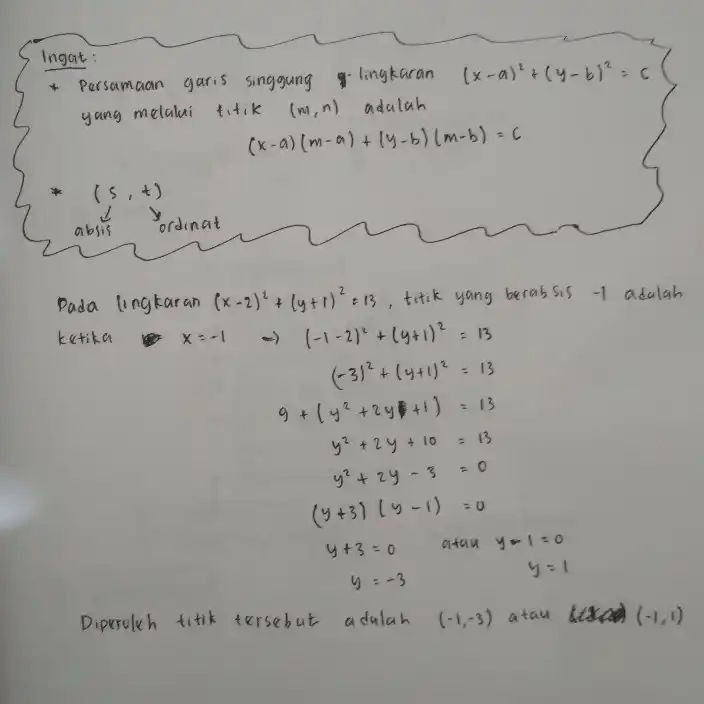 Ingat :
* Persamaan garis singgung lingkaran (x-a)² + (y-b)² = c
yang melalui titik (m,n) adalah
(x-a)(m-a) + (y-b)(m-b) = c
* (s, t)
absis ordinat
Pada lingkaran (x-2)² + (y+1)² = 13, titik yang berabsis -1 adalah
ketika x = -1 → (-1-2)² + (y+1)² = 13
(-3)² + (y+1)² = 13
9 + (y² + 2y +1) = 13
y² + 2y + 10 = 13
y² + 2y - 3 = 0
(y+3) (y-1) = 0
y+3 = 0 atau y-1 = 0
y = -3 y = 1
Diperoleh titik tersebut adalah (-1,-3) atau (-1,1)